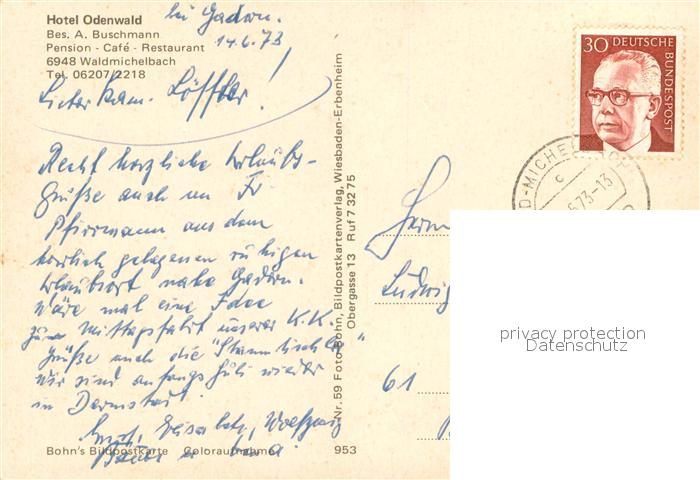 Hotel Odenwald
Bes. A. Buschmann
Pension - Café - Restaurant
6948 Waldmichelbach
Tel. 06207/2218
bei Gadern.
14.6.73
Lieber Kam. Löffler!
Recht herzliche Urlaubs-
grüße auch an Fr
Pfirrmann aus dem
herrlich gelegenen ruhigen
Urlaubsort nahe Gadern.
Wäre mal eine Idee
zur Mittagsfahrt unserer K.K.
Grüße auch die "Stammtischler"
Wir sind anfangs Juli wieder
in Darmstadt.
Elisabeth, Wolfgang
Bohn's Bildpostkarte Coloraufnahme 953
Nr. 59 Foto Bohn, Bildpostkartenverlag, Wiesbaden-Erbenheim
Obergasse 13 Ruf 7 32 75
30 DEUTSCHE
BUNDESPOST
D-MICHEL
c
6.73-13
Herrn
Ludwig
61
privacy protection
Datenschutz